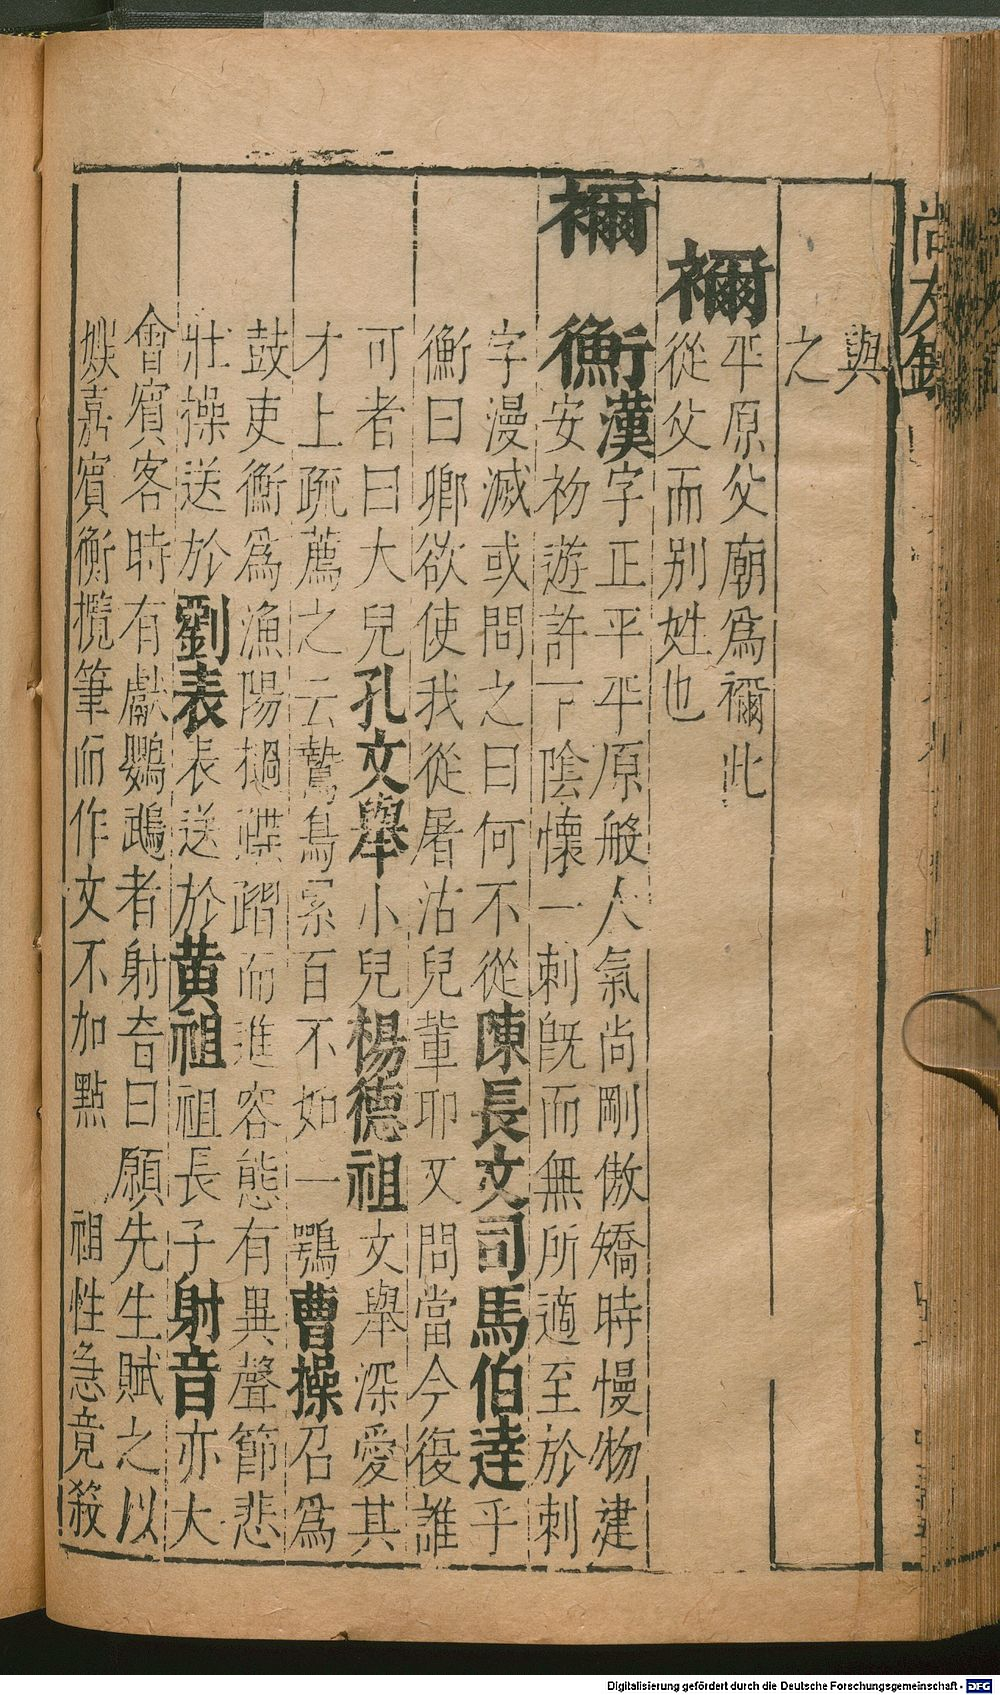 尚友錄
與
之
禰
平原父廟爲禰此
從父而別姓也
禰衡漢字正平平原般人氣尚剛傲矯時慢物建
安初遊許下陰懷一刺旣而無所適至於刺
字漫滅或問之曰何不從陳長文司馬伯達乎
衡曰卿欲使我從屠沽兒輩耶又問當今復誰
可者曰大兒孔文舉小兒楊德祖文舉深愛其
才上疏薦之云鷙鳥累百不如一鶚曹操召爲
鼓吏衡爲漁陽撾蹀躡而進容態有異聲節悲
壯操送於劉表表送於黃祖祖長子射音亦大
會賓客時有獻鸚鵡者射音曰願先生賦之以
娛嘉賓衡攬筆而作文不加點 祖性急竟殺
Digitalisierung gefördert durch die Deutsche Forschungsgemeinschaft - DFG